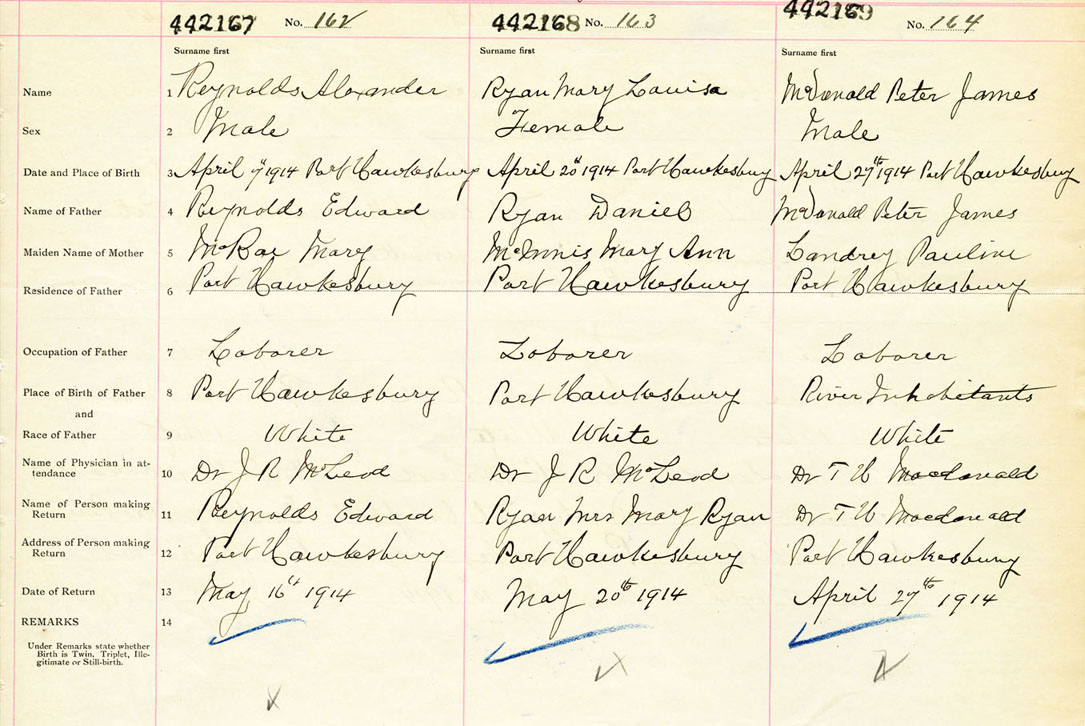 442167 No. 162 442168 No. 163 442169 No. 164
Surname first Surname first Surname first
Name 1 Reynolds Alexander Ryan Mary Louisa McDonald Peter James
Sex 2 Male Female Male
Date and Place of Birth 3 April 7th 1914 Port Hawkesbury April 20th 1914 Port Hawkesbury April 27th 1914 Port Hawkesbury
Name of Father 4 Reynolds Edward Ryan Daniel McDonald Peter James
Maiden Name of Mother 5 McRae Mary McInnis Mary Ann Landrey Pauline
Residence of Father 6 Port Hawkesbury Port Hawkesbury Port Hawkesbury
Occupation of Father 7 Laborer Laborer Laborer
Place of Birth of Father 8 Port Hawkesbury Port Hawkesbury River Inhabitants
and
Race of Father 9 White White White
Name of Physician in at-
tendance 10 Dr J R McLeod Dr J R McLeod Dr T U Macdonald
Name of Person making
Return 11 Reynolds Edward Ryan Mrs Mary Ryan Dr T U Macdonald
Address of Person making
Return 12 Port Hawkesbury Port Hawkesbury Port Hawkesbury
Date of Return 13 May 16th 1914 May 20th 1914 April 27th 1914
REMARKS 14
Under Remarks state whether
Birth is Twin, Triplet, Ille-
gitimate or Still-birth.